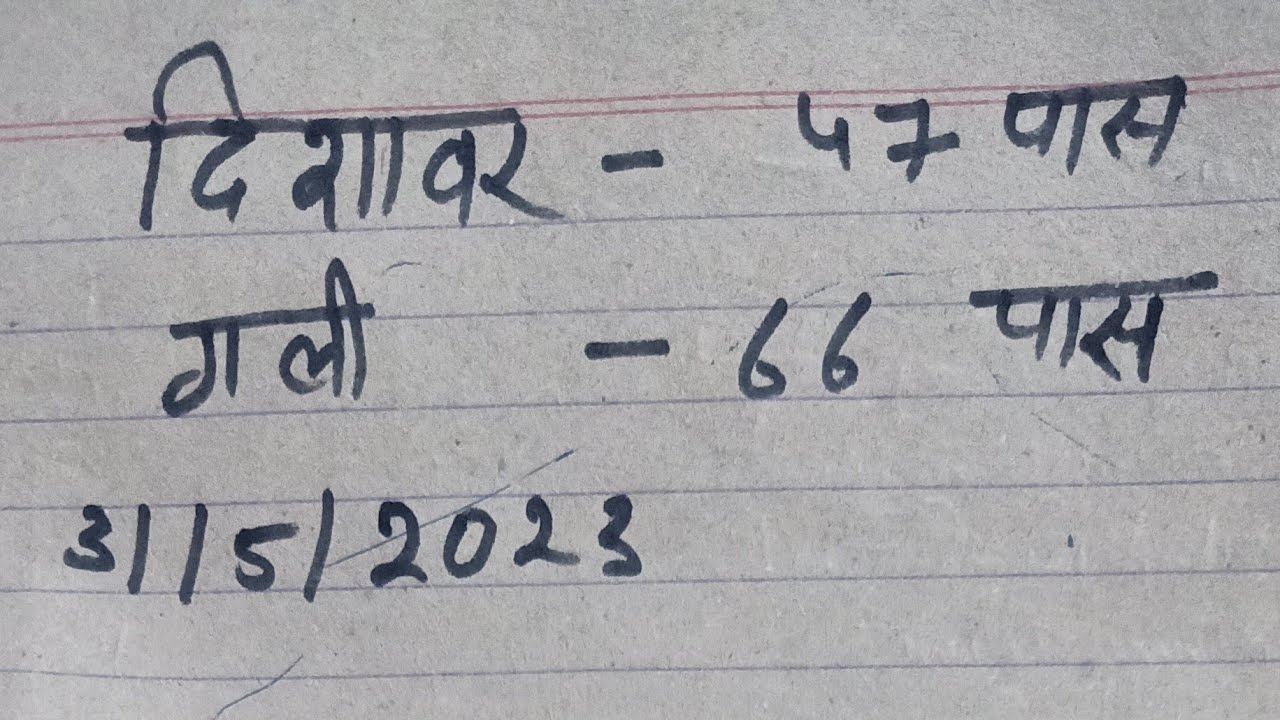 दिशावर - 57 पास
गली - 66 पास
31/5/2023